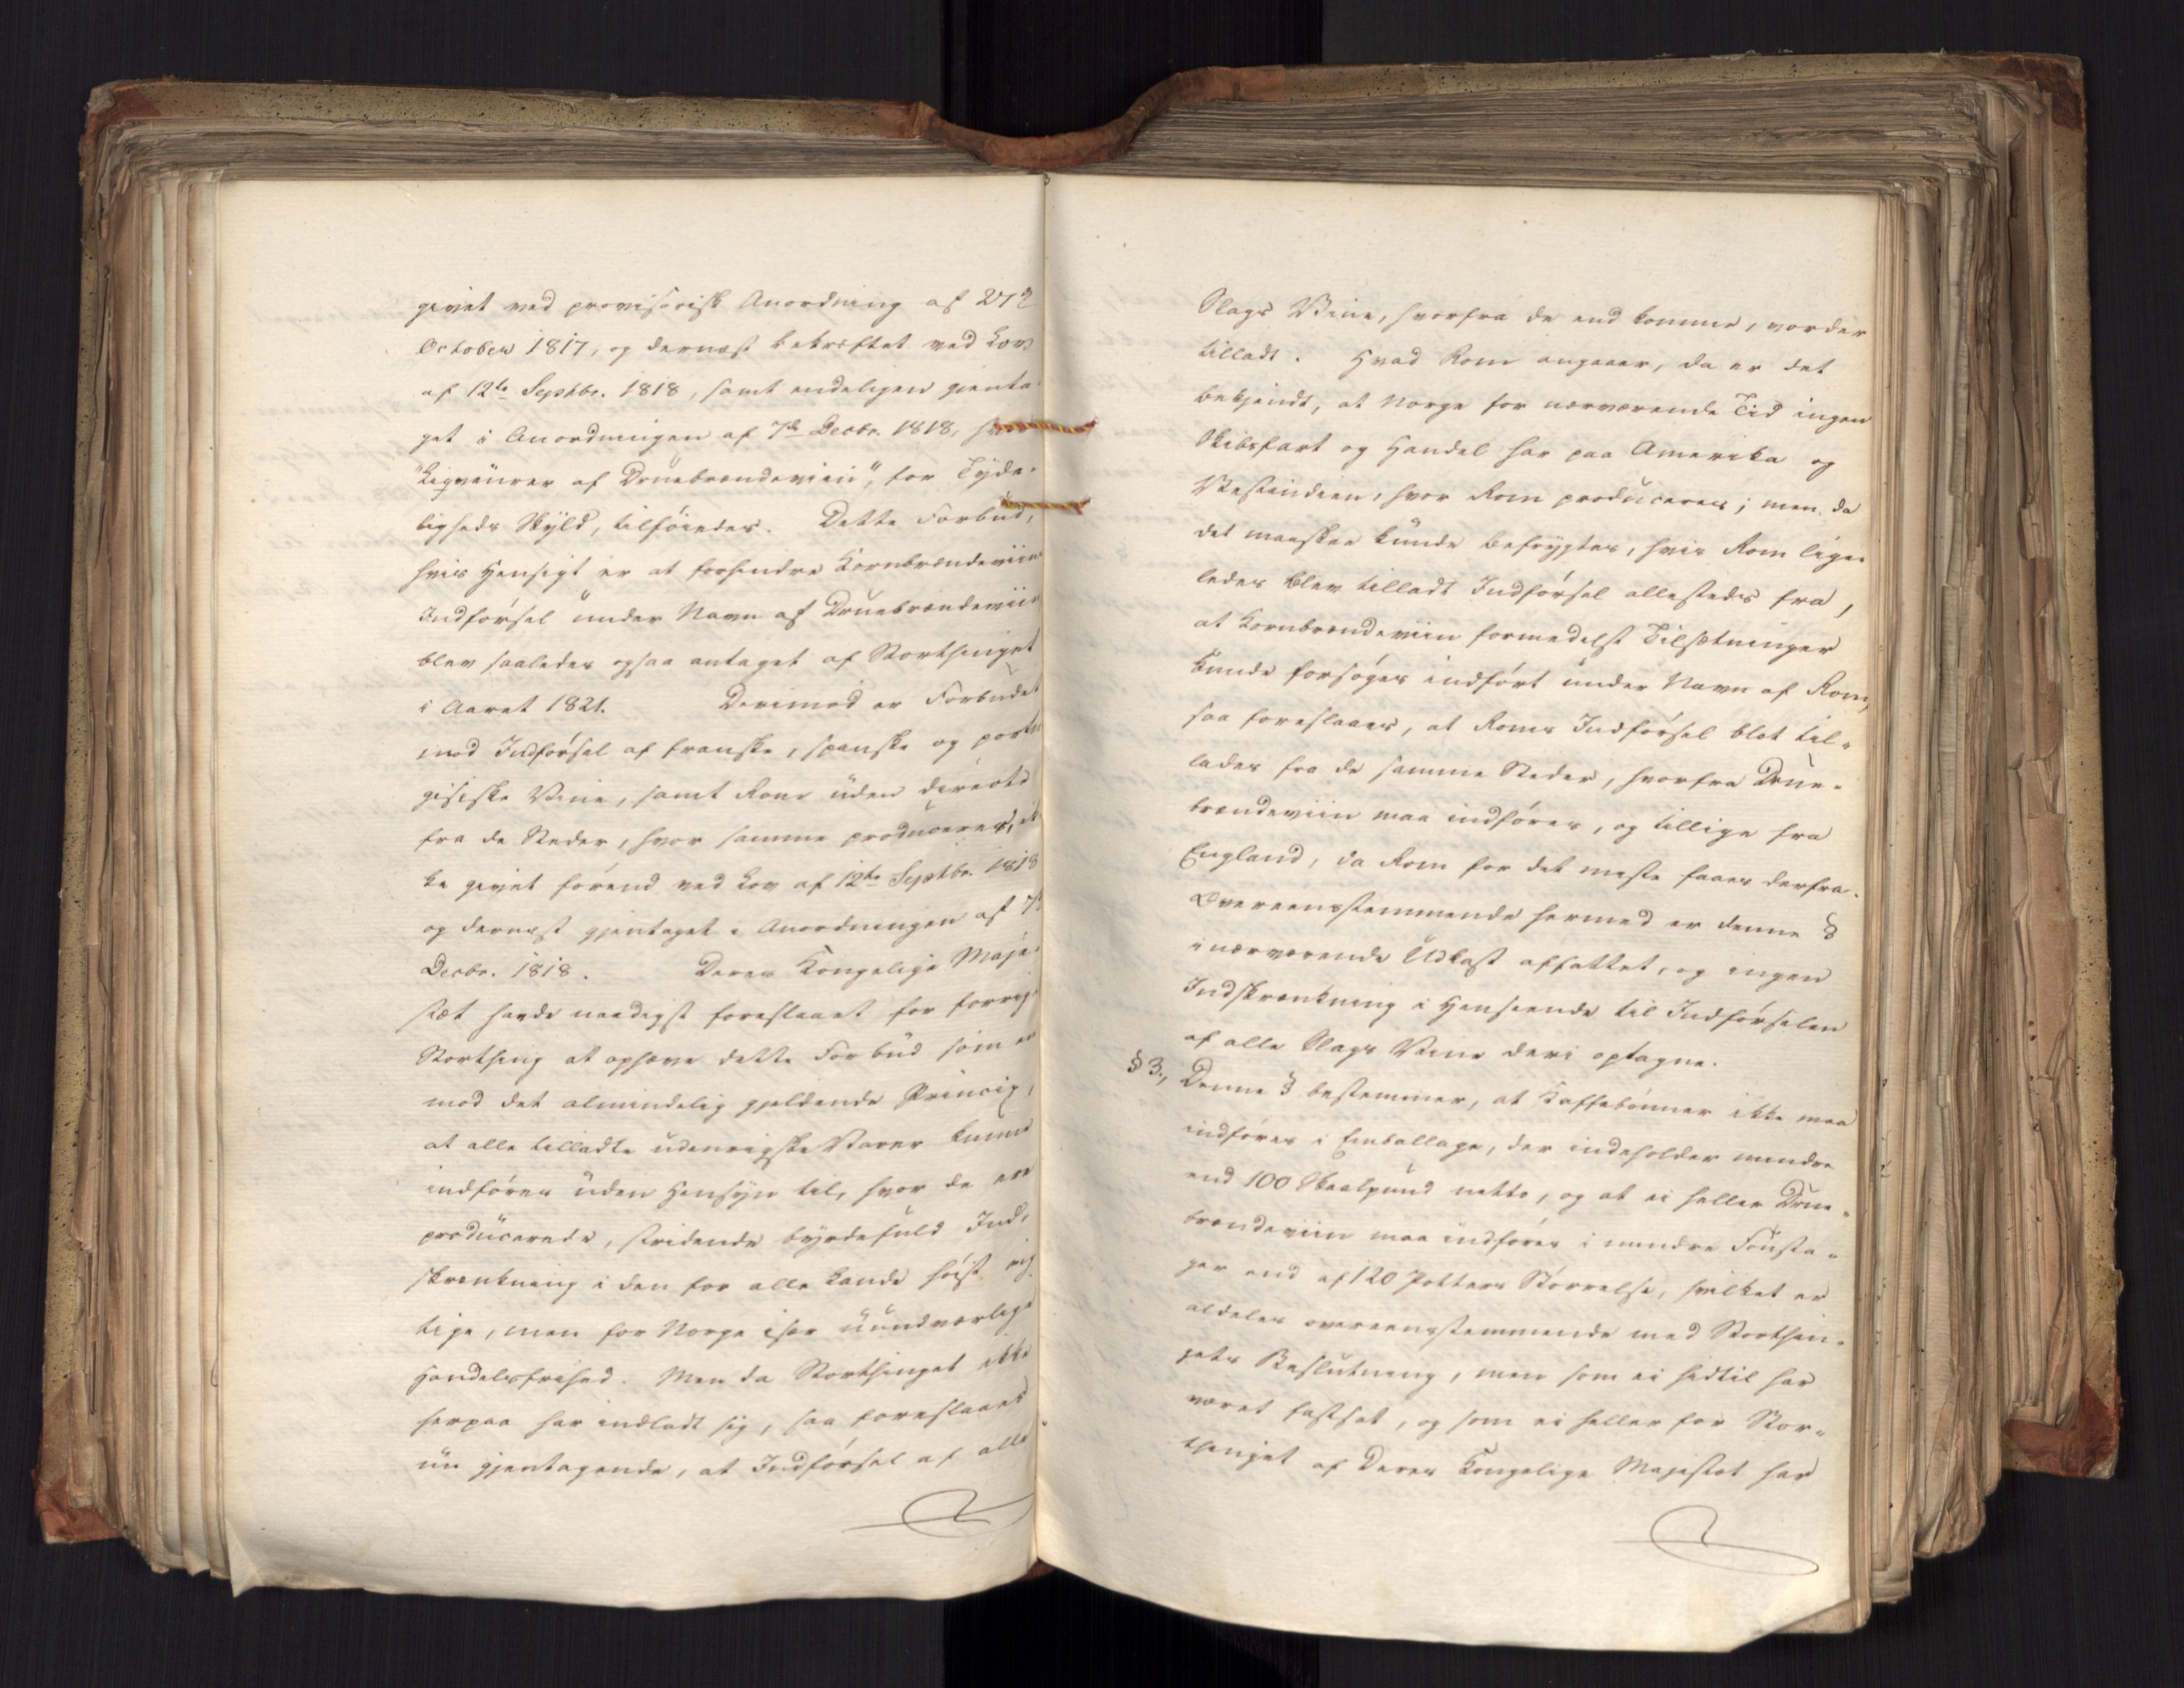 givet ved provisorisk Anordning af 27d
October 1817, og dernæst bekræftet ved Lov
af 12te Septbr. 1818, samt endeligen gienta-
get i Anordningen af 7de Decbr. 1818, hvor
"Liqveurer af Druebrændeviin", for Tyde-
ligheds Skyld, tilføiedes. Dette Forbud,
hvis Hensigt er at forhindre Kornbrændeviins
Indførsel under Navn af Druebrændeviin
blev saaledes ogsaa antaget af Storthinget
i Aaret 1821. Derimod er Forbudet
mod Indførsel af franske, spanske og portu
gisiske Vine, samt Rom uden directe
fra de Steder, hvor samme produceres, ik
ke givet førend ved Lov af 12te Septbr. 1818
og dernæst gjentaget i Anordningen af 7d
Decbr. 1818. Deres Kongelige Maje-
stæt havde naadigst foreslaaet for forrige
Storthing at ophæve dette Forbud som en
mod det almindelig gjeldende Princip,
at alle tilladte udenrigske Varer kunne
indføres uden Hensyn til, hvor de ere
producerede, stridende byrdefuld Ind-
skrænkning i den for alle Lande høist vig
tige, men for Norge især uundværlige
Handelsfrihed. Men da Storthinget ikke
herpaa har indladt sig, saa foreslaaes
nu gjentagende, at Indførsel af alle
Slags Vine, hvorfra de end komme, vorder
tilladt. Hvad Rom angaaer, da er det
bekjendt, at Norge for nærværende Tid ingen
Skibsfart og Handel har paa Amerika og
Vestindien, hvor Rom produceres; men da
det maaskee kunde befrygtes, hvis Rom lige-
ledes blev tilladt Indførsel allesteds fra,
at Kornbrændeviin formedelst Tilsætninger
kunde forsøges indført under Navn af Rom,
saa foreslaaes, at Roms Indførsel blot til-
lades fra de samme Steder, hvorfra Drue-
brændeviin maa indføres, og tillige fra
England, da Rom for det meste faaes derfra.
Overeensstemmende hermed er denne §
i nærværende Udkast affattet, og ingen
Indskrænkning i Henseende til Indførselen
af alle Slags Vine deri optagne.
§ 3., Denne § bestemmer, at Kaffebønner ikke maa
indføres i Emballage, der indeholder mindre
end 100 Skaalpund netto, og at ei heller Drue-
brændeviin maa indføres i mindre Fousta-
ger end af 120 Potters Størrelse, hvilket er
aldeles overeensstemmende med Storthin-
gets Beslutning, men som ei hidtil har
været fastsat, og som ei heller for Stor-
thinget af Deres Kongelige Majestæt har